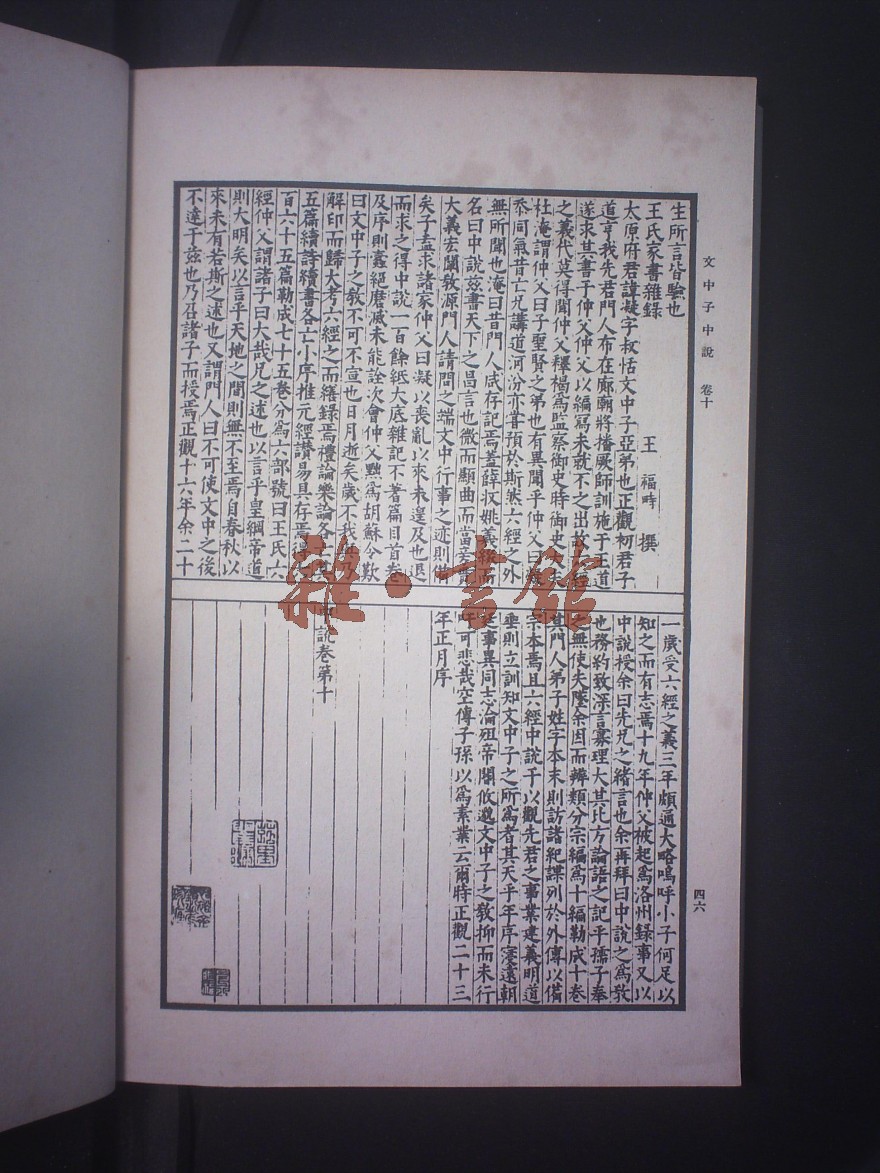 文中子中說 卷十
四六
生所言皆驗也
王氏家書雜錄 王福畤 撰
太原府君諱凝字叔恬文中子亞弟也正觀初君子
道亨我先君門人布在廊廟將播厥師訓施于王道
遂求其書于仲父仲父以編寫未就不之出故六經
之義代莫得聞仲父釋褐爲監察御史時御史大夫
杜淹謂仲父曰子聖賢之弟也有異聞乎仲父曰凝
忝同氣昔亡兄講道河汾亦嘗預於斯然六經之外
無所聞也淹曰昔門人咸存記焉蓋薛收姚義綴而
名曰中說茲書天下之昌言也微而顯曲而當旁貫
大義宏闡敎源門人請問之端文中行事之迹則備
矣子盍求諸家仲父曰凝以喪亂以來未遑及也退
而求之得中說一百餘紙大底雜記不著篇目首卷
及序則蠹絕磨滅未能詮次會仲父黜爲胡蘇令歎
曰文中子之敎不可不宣也日月逝矣歲不我與乃
解印而歸大考六經之而繕錄焉禮論樂論各亡其
五篇續詩續書各亡小序推元經讚易具存焉得六
百六十五篇勒成七十五卷分爲六部號曰王氏六
經仲父謂諸子曰大哉兄之述也以言乎皇綱帝道
則大明矣以言乎天地之間則無不至焉自春秋以
來未有若斯之述也又謂門人曰不可使文中之後
不達于茲也乃召諸子而授焉正觀十六年余二十
一歲受六經之義三年頗通大略嗚呼小子何足以
知之而有志焉十九年仲父被起爲洛州錄事又以
中說授余曰先兄之緒言也余再拜曰中說之爲敎
也務約致深言寡理大其比方論語之記乎孺子奉
之無使失墜余因而辨類分宗編爲十編勒成十卷
其門人弟子姓字本末則訪諸紀諜列於外傳以備
宗本焉且六經中說于以觀先君之事業建義明道
垂則立訓知文中子之所爲者其天乎年序寖遠朝
廷事異同志淪殂帝閽攸邈文中子之敎抑而未行
吁可悲哉空傳子孫以爲素業云爾時正觀二十三
年正月序
中說卷第十
雜·書館